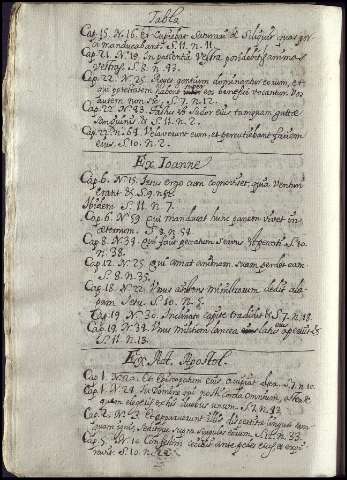 Tabla
Cap. 15. N. 16. Et Cupiebat Saturari de Siliquis quas porci
manducabant. S. 11. n. 11
Cap. 21. N. 19. In patientia Vestra possidebitis animas
vestras. S. 8. n. 43.
Cap. 22. N. 25. Reges gentium dominantur eorum, et
qui potestatem habent super eos benefici vocantur. Vos
autem non sic. S. 7. n. 12.
Cap. 22. N. 43. Factus est sudor eius tamquam guttae
Sanguinis &. S. 11. n. 2.
Cap. 22. n. 64. Velaverunt eum, et percutiebant faciem
eius. S. 10. n. 2.
Ex Ioanne
Cap. 6. N. 15. Iesus ergo cum cognovisset, quia venturi
erant &. S. 9. n.
Ibidem. S. 11. n. 7.
Cap. 6. N. 59 qui manducat hunc panem vivet in
aeternum. S. 8. n. 54.
Cap. 8. N. 34. qui facit peccatum servus est peccati. S. 10.
n. 38.
Cap. 12. N. 25. qui amat animam suam perdet eam
S. 8. n. 35.
Cap. 18. N. 22. Unus astans ministrorum dedit alapam
Iesu. S. 10. n. 3.
Cap. 19. N. 30. Inclinato capite tradidit &. S. 7. n. 18.
Cap. 19. N. 34. Unus militum lancea latus eius aperuit &
S. 11. n. 13.
Ex Act. Apostol.
Cap. 1. Et Episcopatum eius accipiat alter. S. 7. n. 10.
Cap. 1. N. 24. Tu Domine qui nosti corda omnium, ostende
quem elegeris ex his duobus unum. S. 7. n. 12
Cap. 2. N. 3 Et apparuerunt illis dispertitae linguae tamquam
ignis, seditque supra singulos eorum. S. 12. n. 33.
Cap. 5. N. 10. Confestim cecidit ante pedes eius, et expiravit.
S. 10. n.